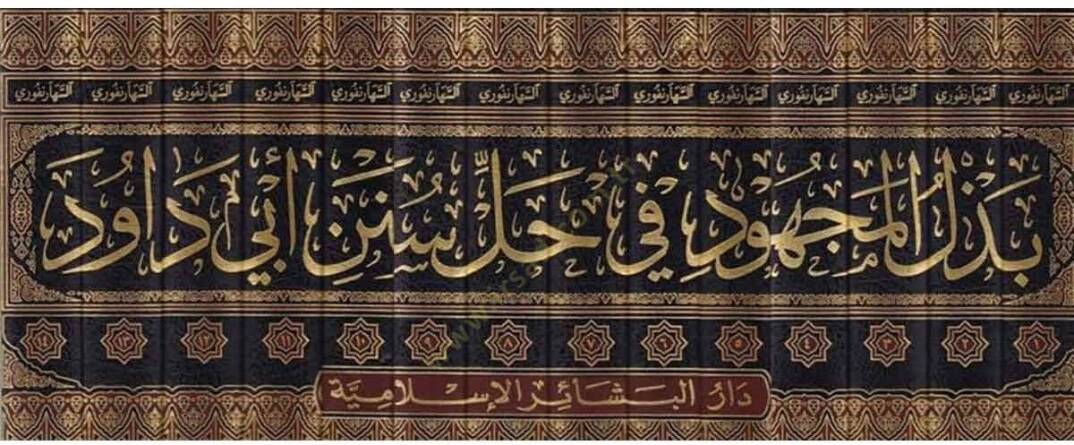 السهارنفوري السهارنفوري السهارنفوري السهارنفوري السهارنفوري السهارنفوري السهارنفوري السهارنفوري السهارنفوري السهارنفوري السهارنفوري السهارنفوري السهارنفوري السهارنفوري
بَذْلُ المَجْهُودِ فِي حَلِّ سُنَنِ أَبِي دَاوُد
١ ٢ ٣ ٤ ٥ ٦ ٧ ٨ ٩ ١٠ ١١ ١٢ ١٣ ١٤
دَارُ البَشَائِر الإِسْلَامِيَّة